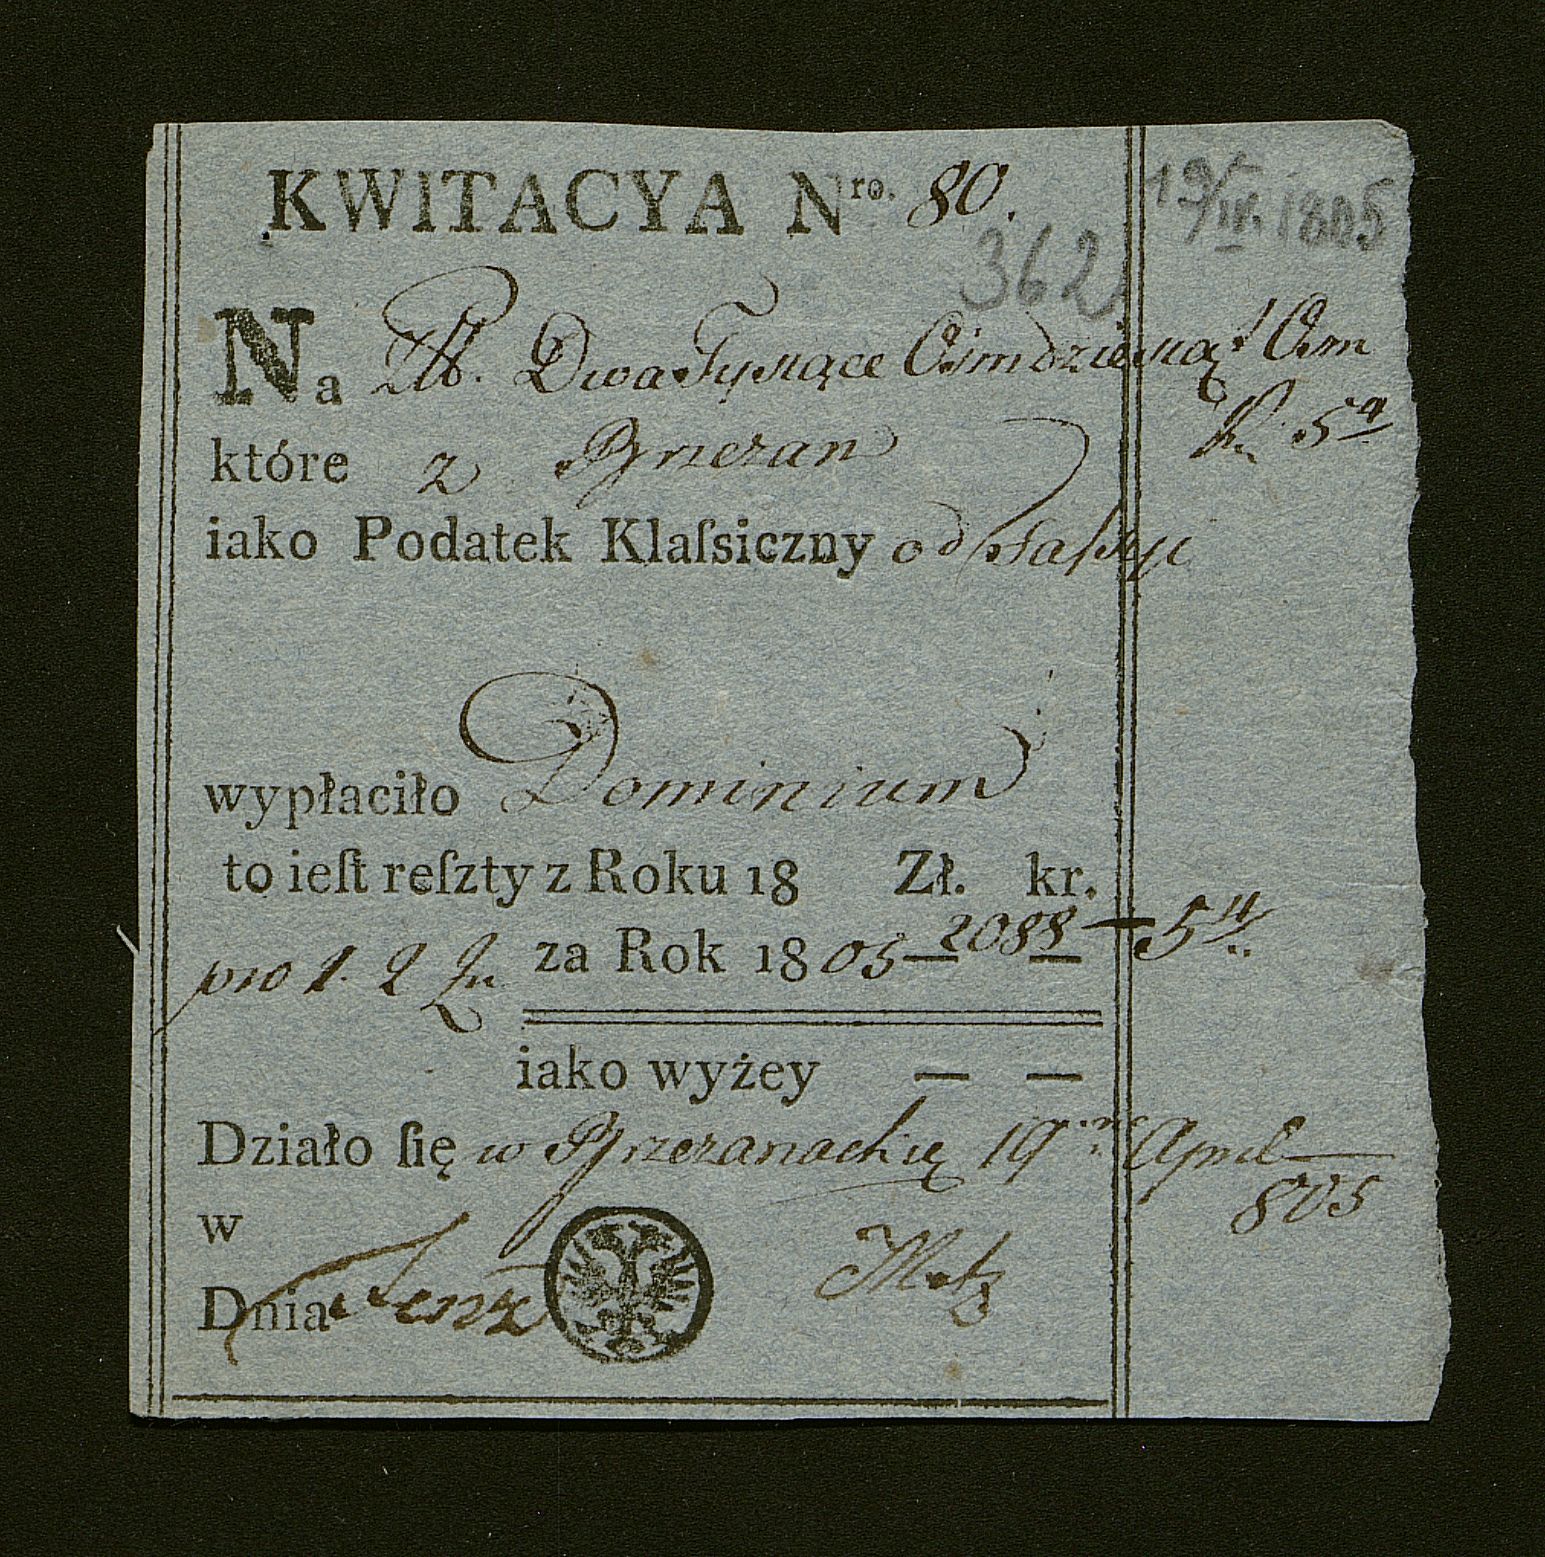 KWITACYA Nro. 80.
19/IV. 1805
362
Na Zł. Dwa Tysiące Ośmdziesiąt Ośm
kr. 5
które z Brzezan
iako Podatek Klaſsiczny od Fassyi
wypłaciło Dominium
to ieſt reſzty z Roku 18 Zł. kr.
pro 1. 2 za Rok 1805 — 2088 — 5
iako wyżey — —
Działo ſię w Brzezanach 19 April
805
w
Dnia